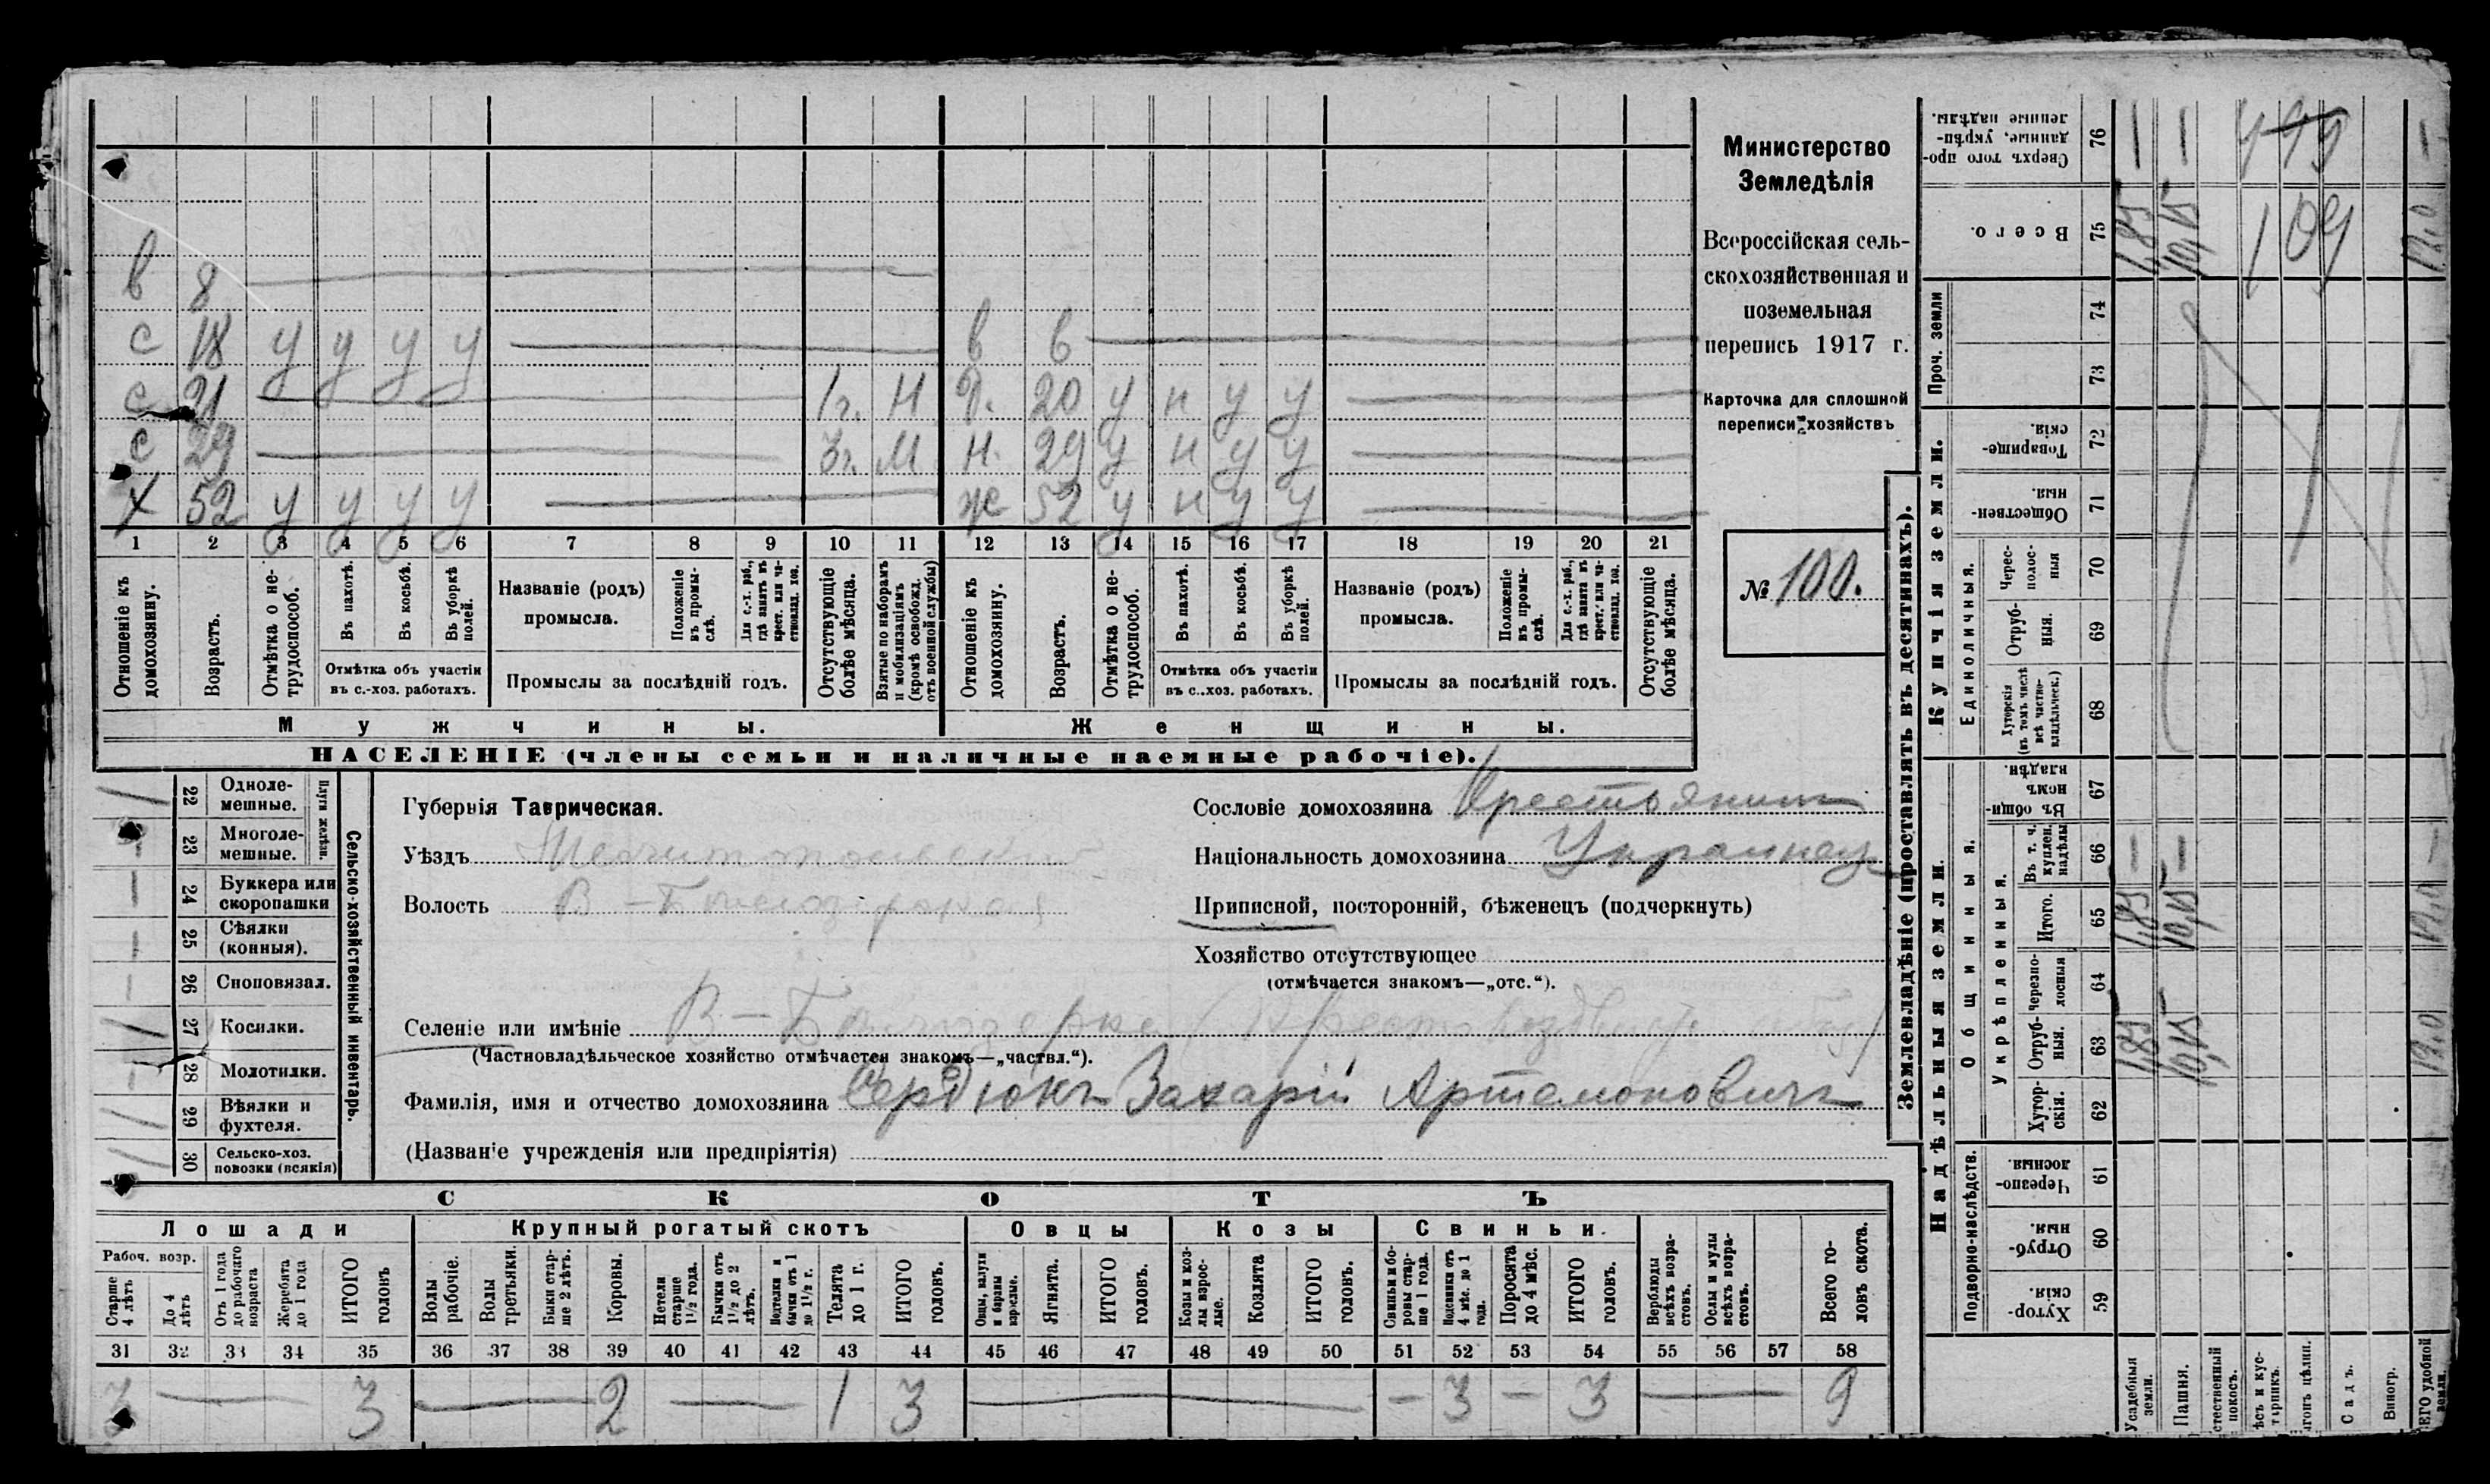 в 8
с 18 у у у у в 6
с 21 1 г. Н д. 20 у н у у
с 29 3 г. М н. 29 у н у у
х 52 у у у у ж 52 у н у у
1 2 3 4 5 6 7 8 9 10 11 12 13 14 15 16 17 18 19 20 21
Отношеніе къ домохозяину.
Возрастъ.
Отмѣтка о не-
трудоспособ.
Въ пахотѣ.
Въ косьбѣ.
Въ уборкѣ
полей.
Отмѣтка объ участіи
въ с.-хоз. работахъ.
Названіе (родъ)
промысла.
Положеніе
въ промы-
слѣ.
Для с.-х. раб.,
гдѣ занятъ въ
крест. или ча-
стновлад. хоз.
Промыслы за послѣдній годъ.
Отсутствующіе
болѣе мѣсяца.
Взятые по наборамъ
и мобилизаціямъ
(кромѣ освобожд.
отъ военной службы)
Отношеніе къ
домохозяину.
Возрастъ.
Отмѣтка о не-
трудоспособ.
Въ пахотѣ.
Въ косьбѣ.
Въ уборкѣ
полей.
Отмѣтка объ участіи
въ с..хоз. работахъ.
Названіе (родъ)
промысла.
Положеніе
въ промы-
слѣ.
Для с.-х. раб.,
гдѣ занята въ
крест. или ча-
стновлад. хоз.
Промыслы за послѣдній годъ.
Отсутствующіе
болѣе мѣсяца.
Мужчины. Женщины.
НАСЕЛЕНІЕ (члены семьи и наличные наемные рабочіе).
Министерство
Земледѣлія
Всероссійская сель-
скохозяйственная и
поземельная
перепись 1917 г.
Карточка для сплошной
переписи хозяйствъ
№ 100.
22 Одноле-
мешные.
23 Многоле-
мешные.
Плуги желѣзн.
24 Буккера или
скоропашки
25 Сѣялки
(конныя).
26 Сноповязал.
27 Косилки.
28 Молотилки.
29 Вѣялки и
фухтеля.
30 Сельско-хоз.
повозки (всякія)
Сельско-хозяйственный инвентарь.
Губернія Таврическая.
Уѣздъ Мелитопольскій
Волость В-Бѣлозерская
Селеніе или имѣніе В-Бѣлозерка
(Частновладѣльческое хозяйство отмѣчается знакомъ—„частвл.“).
Фамилія, имя и отчество домохозяина Сердюкъ Захарій Артамоновичъ
(Названіе учрежденія или предпріятія)
Сословіе домохозяина Крестьянинъ
Національность домохозяина Украинец
Приписной, посторонній, бѣженецъ (подчеркнуть)
Хозяйство отсутствующее
(отмѣчается знакомъ—„отс.“).
СКОТЪ
Лошади Крупный рогатый скотъ Овцы Козы Свиньи.
Рабоч. возр.
Старше
4 лѣтъ
До 4
лѣтъ
Отъ 1 года
до рабочаго
возраста
Жеребята
до 1 года
ИТОГО
головъ
Волы
рабочіе.
Волы
третьяки.
Быки стар-
ше 2 лѣтъ.
Коровы.
Нетели
старше
1½ года.
Бычки отъ
1½ до 2
лѣтъ.
Подтелки и
бычки отъ 1
до 1½ г.
Телята
до 1 г.
ИТОГО
головъ.
Овцы, валухи
и бараны
взрослые.
Ягнята.
ИТОГО
головъ.
Козы и коз-
лы взрос-
лые.
Козлята
ИТОГО
головъ.
Свиньи и бо-
ровы стар-
ше 1 года.
Подсвинки отъ
4 мѣс. до 1
года.
Поросята
до 4 мѣс.
ИТОГО
головъ.
Верблюды
всѣхъ возра-
стовъ.
Ослы и мулы
всѣхъ возра-
стовъ.
Всего го-
ловъ скота.
31 32 33 34 35 36 37 38 39 40 41 42 43 44 45 46 47 48 49 50 51 52 53 54 55 56 57 58
3 — 3 — 2 — 1 3 — – 3 – 3 — 9
Землевладѣніе (проставлять въ десятинахъ).
Надѣльныя земли.
Купчія земли.
Проч. земли
Подворно-наслѣдств.
Общинныя.
Укрѣпленныя.
Единоличныя.
Сверхъ того про-
данные, укрѣп-
ленные надѣлы.
76
Всего.
75
74
73
Товарище-
скія.
72
Обществен-
ныя.
71
Черес-
полос-
ныя
70
Отруб-
ныя.
69
Хуторскія
(въ томъ числѣ
всѣ частно-
владѣльческ.)
68
Въ общин-
номъ
владѣн.
67
Въ т. ч.
куплен.
надѣлы
66
Итого.
65
Черезпо-
лосныя
64
Отруб-
ныя.
63
Хутор-
скія.
62
Черезпо-
лосныя.
61
Отруб-
ныя.
60
Хутор-
скія.
59
Усадебныя
земли.
Пашня.
Садъ.
Виногр.
1,85 10,15 109 12,0
1,85 10,15 12,0
1,85 10,15 12,0